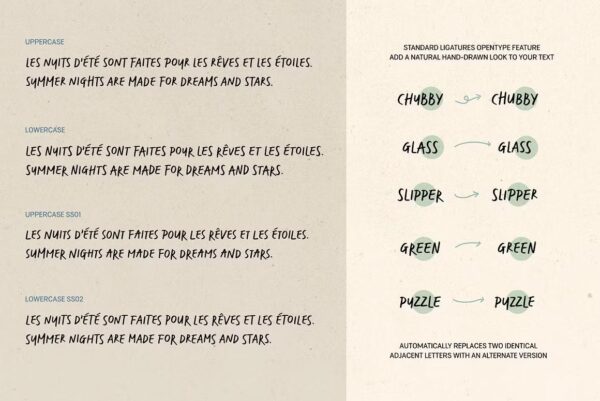 UPPERCASE
LES NUITS D'ÉTÉ SONT FAITES POUR LES RÊVES ET LES ÉTOILES.
SUMMER NIGHTS ARE MADE FOR DREAMS AND STARS.
LOWERCASE
LES NUITS D'ÉTÉ SONT FAITES POUR LES RÊVES ET LES ÉTOILES.
SUMMER NIGHTS ARE MADE FOR DREAMS AND STARS.
UPPERCASE SS01
LES NUITS D'ÉTÉ SONT FAITES POUR LES RÊVES ET LES ÉTOILES.
SUMMER NIGHTS ARE MADE FOR DREAMS AND STARS.
LOWERCASE SS02
LES NUITS D'ÉTÉ SONT FAITES POUR LES RÊVES ET LES ÉTOILES.
SUMMER NIGHTS ARE MADE FOR DREAMS AND STARS.
STANDARD LIGATURES OPENTYPE FEATURE
ADD A NATURAL HAND-DRAWN LOOK TO YOUR TEXT
CHUBBY CHUBBY
GLASS GLASS
SLIPPER SLIPPER
GREEN GREEN
PUZZLE PUZZLE
AUTOMATICALLY REPLACES TWO IDENTICAL
ADJACENT LETTERS WITH AN ALTERNATE VERSION